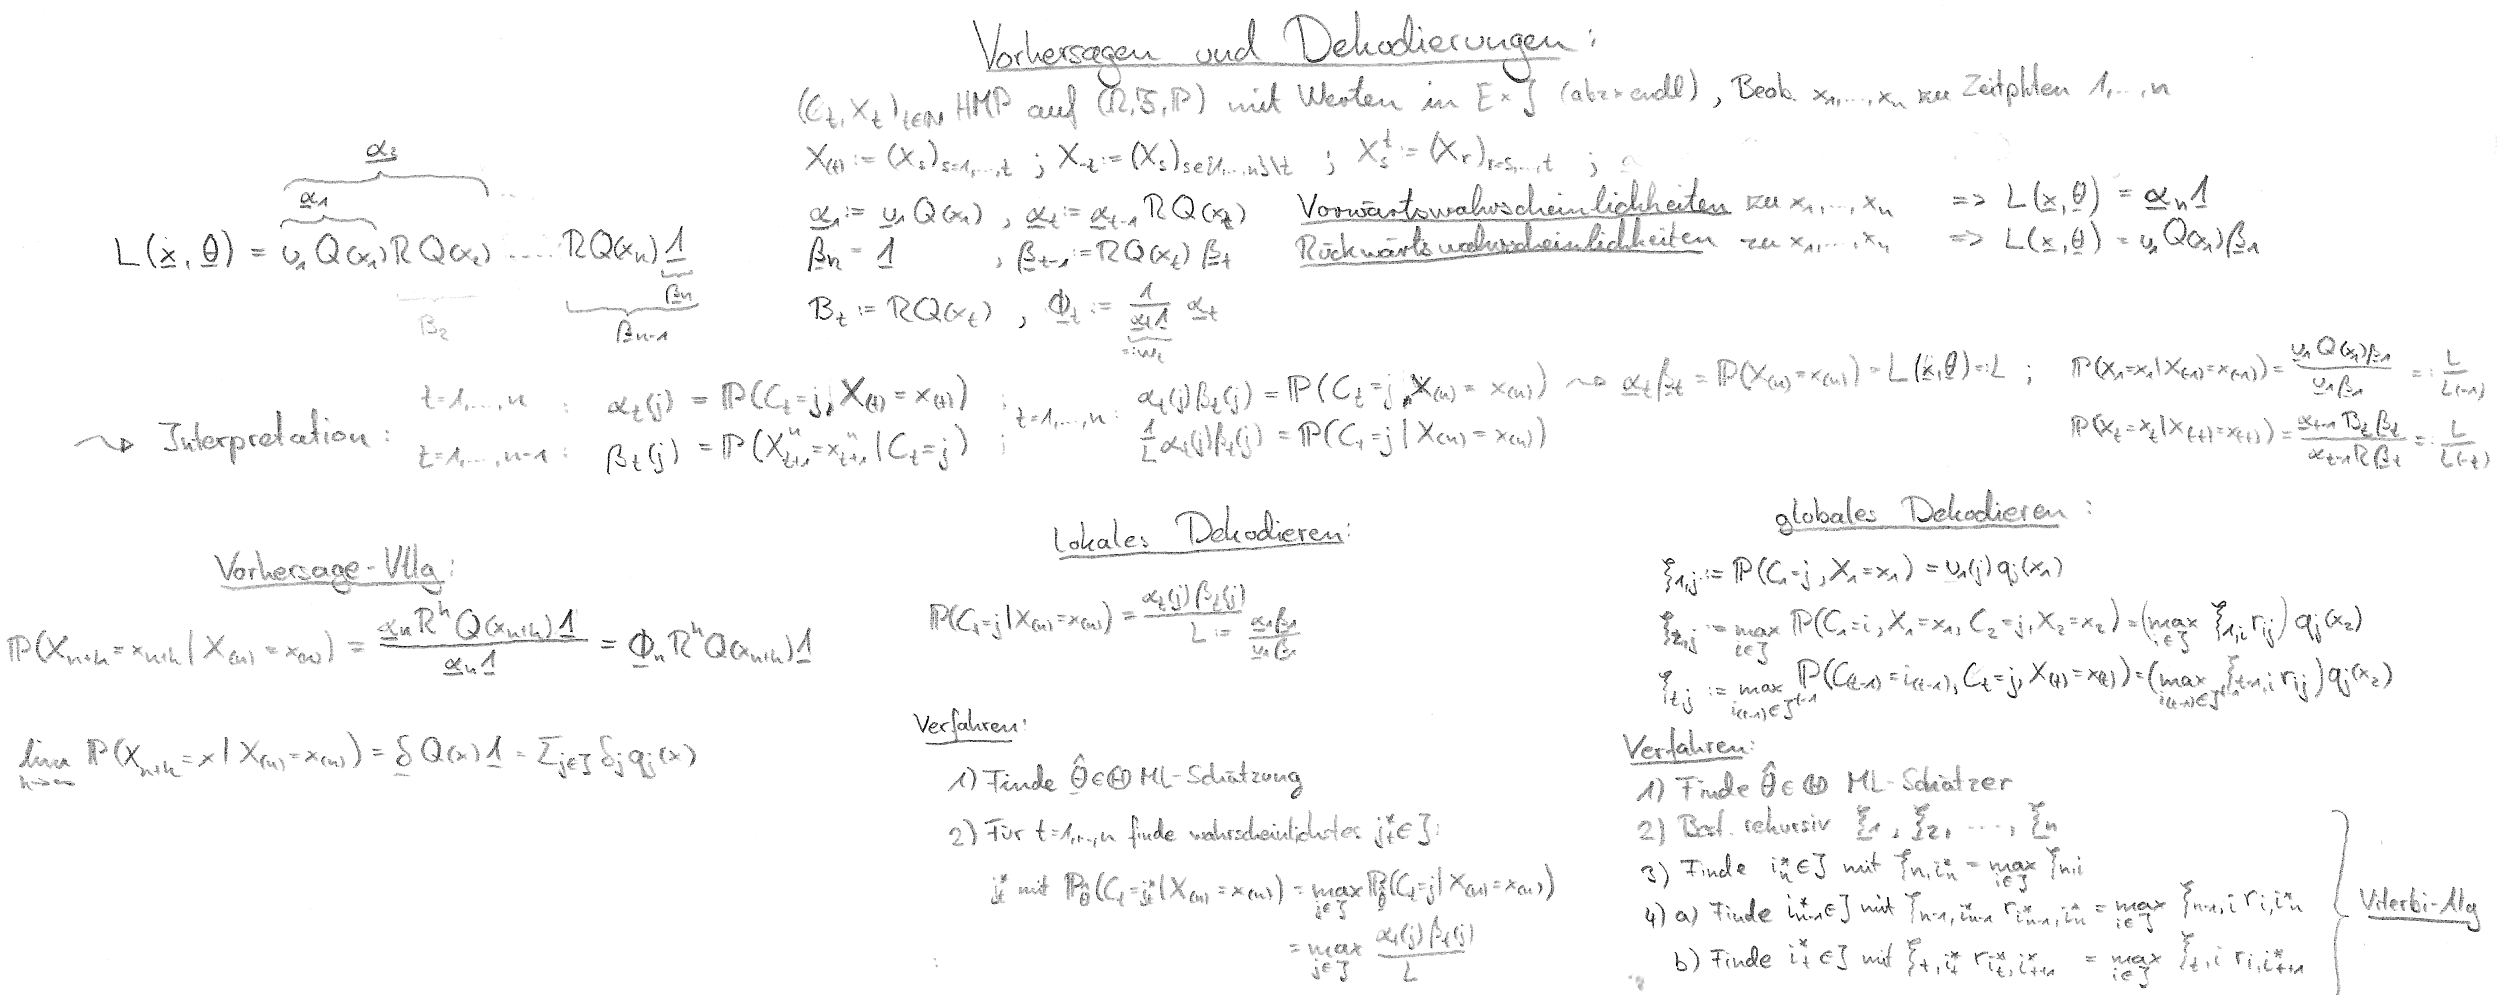 Vorhersagen und Dekodierungen:
(C_t, X_t)_{t∈ℕ} HMP auf (Ω, 𝔉, ℙ) mit Werten in E×J (abz×endl), Beob. x_1,...,x_n zu Zeitpkten 1,...,n
X_(t) := (X_s)_{s=1,...,t} ; X_{-t} := (X_s)_{s∈{1,...,n}\t} ; X_s^t := (X_r)_{r=s,...,t} ;
α_1 := υ_1 Q(x_1) , α_t := α_{t-1} R Q(x_t) Vorwärtswahrscheinlichkeiten zu x_1,...,x_n => L(x,θ) = α_n 1
β_n = 1 , β_{t-1} := R Q(x_t) β_t Rückwärtswahrscheinlichkeiten zu x_1,...,x_n => L(x,θ) = υ_1 Q(x_1) β_1
B_t := R Q(x_t) , Φ_t := 1/(α_t 1) α_t
=: w_t
α_2
α_1 ...
L(x,θ) = υ_1 Q(x_1) R Q(x_2) .... R Q(x_n) 1
β_n
B_2 β_{n-1}
⇝ Interpretation:
t=1,...,n : α_t(j) = ℙ(C_t=j, X_(t) = x_(t)) ;
t=1,...,n-1 : β_t(j) = ℙ(X_{t+1}^n = x_{t+1}^n | C_t=j) ;
t=1,...,n: α_t(j)β_t(j) = ℙ(C_t=j, X_(n) = x_(n)) ⇝ α_t β_t = ℙ(X_(n) = x_(n)) = L(x,θ) =: L ;
1/L α_t(j)β_t(j) = ℙ(C_t=j | X_(n) = x_(n))
ℙ(X_1=x_1 | X_(-1) = x_(-1)) = (υ_1 Q(x_1) β_1)/(υ_1 β_1) =: L/L(-1)
ℙ(X_t=x_t | X_(-t) = x_(-t)) = (α_{t-1} B_t β_t)/(α_{t-1} R β_t) =: L/L(-t)
Vorhersage-Vllg:
ℙ(X_{n+h} = x_{n+h} | X_(n) = x_(n)) = (α_n R^h Q(x_{n+h}) 1)/(α_n 1) = Φ_n R^h Q(x_{n+h}) 1
lim_{h→∞} ℙ(X_{n+h} = x | X_(n) = x_(n)) = δ Q(x) 1 = Σ_{j∈J} δ_j q_j(x)
Lokales Dekodieren:
ℙ(C_t=j | X_(n) = x_(n)) = (α_t(j) β_t(j))/(L := (α_1 β_1)/(υ_1 β_1))
Verfahren:
1) Finde θ̂∈Θ ML-Schätzung
2) Für t=1,...,n finde wahrscheinlichstes j_t^*∈J:
j_t^* mit ℙ_θ̂(C_t=j_t^* | X_(n) = x_(n)) = max_{j∈J} ℙ_θ̂(C_t=j | X_(n) = x_(n))
= max_{j∈J} (α_t(j) β_t(j))/L
globales Dekodieren:
ξ_{1,j} := ℙ(C_1=j, X_1=x_1) = υ_1(j) q_j(x_1)
ξ_{2,j} := max_{i∈J} ℙ(C_1=i, X_1=x_1, C_2=j, X_2=x_2) = (max_{i∈J} ξ_{1,i} r_{ij}) q_j(x_2)
ξ_{t,j} := max_{i_(t-1)∈J^{t-1}} ℙ(C_(t-1) = i_(t-1), C_t=j, X_(t) = x_(t)) = (max_{i_(t-1)∈J^{t-1}} ξ_{t-1,i} r_{ij}) q_j(x_2)
Verfahren:
1) Finde θ̂∈Θ ML-Schätzer
2) Best. rekursiv ξ_1, ξ_2, ..., ξ_n
3) Finde i_n^*∈J mit ξ_{n,i_n^*} = max_{i∈J} ξ_{n,i}
4) a) Finde i_{n-1}^*∈J mit ξ_{n-1,i_{n-1}^*} r_{i_{n-1}^*,i_n^*} = max_{i∈J} ξ_{n-1,i} r_{i,i_n^*}
b) Finde i_t^*∈J mit ξ_{t,i_t^*} r_{i_t^*,i_{t+1}^*} = max_{i∈J} ξ_{t,i} r_{i,i_{t+1}^*}
Viterbi-Alg